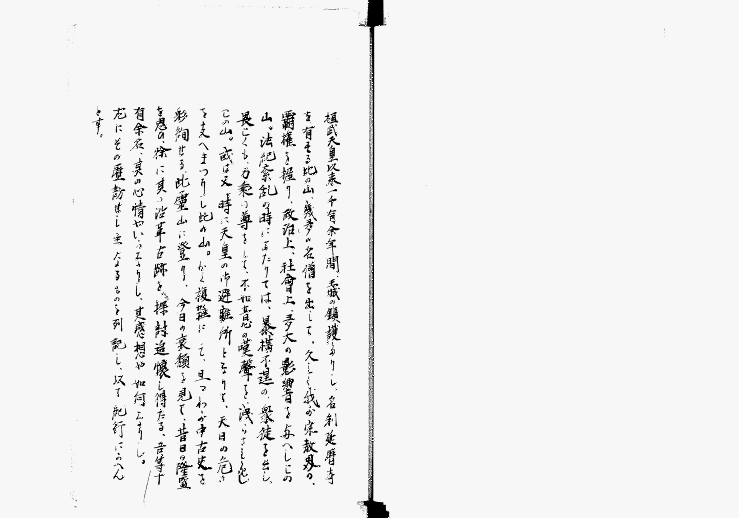 桓武天皇以来一千有余年間、王城の鎮護たりし、名刹延暦寺
を有する此の山、幾多の名僧を出して、久しく我が宗教界の、
覇権を握り、政治上、社會上、多大の影響を与へしこの
山。法紀紊乱の時にあたりては、暴横不逞の衆徒を出し、
畏くも、万乗の尊をして、不如意の嘆聲を洩らさしめし
この山。或は又、時に天皇の御避難所となりて、天日の危に
を支へまつりし此の山。かく複雑にして、且つわが中古史を
彩絢せる此靈山に登り、今日の衰頽を見て、昔日の隆盛
を思の徐に其の沿革古跡を探討追懐し得たる、吾等十
有余名、其の心情やいかなりし、其感想や如何なりし。
左にその歴訪せし主なるものを列記し、以て紀行にかへん
とす。